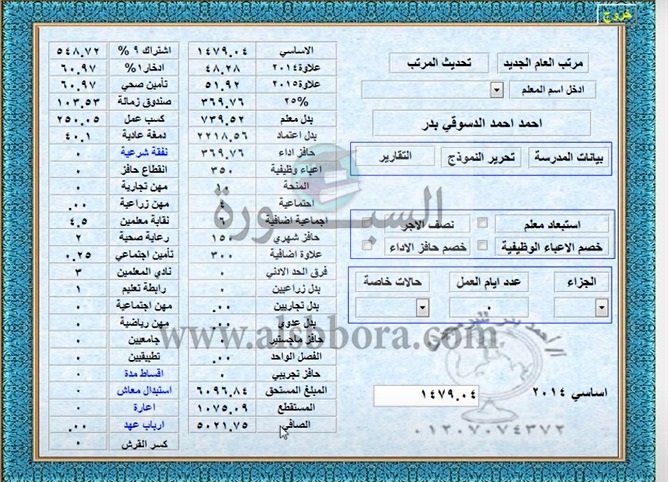 خروج
مرتب العام الجديد
تحديث المرتب
ادخل اسم المعلم
احمد احمد الدسوقي بدر
بيانات المدرسة
تحرير النموذج
التقارير
استبعاد معلم
نصف الاجر
خصم الاعباء الوظيفية
خصم حافز الاداء
الجزاء
عدد ايام العمل
حالات خاصة
٠
اساسي ٢٠١٤ ١٤٧٩.٠٤
٠١٢٠٧٠٧٤٣٧٢
الاساسي ١٤٧٩.٠٤
علاوة٢٠١٤ ٤٨.٢٨
علاوة٢٠١٥ ٥١.٩٢
٢٥% ٣٦٩.٧٦
بدل معلم ٧٣٩.٥٢
بدل اعتماد ٢٢١٨.٥٦
حافز اداء ٣٦٩.٧٦
اعباء وظيفية ٣٥٠
المنحة ١٠
اجتماعية ٤
اجماعية اضافية ٦
حافز شهري ١٥٠
علاوة اضافية ٣٠٠
فرق الحد الادني ٠
بدل زراعيين ٠
بدل تجاريين ٠.٠
بدل عدوي ٠.٠
حافز ماجستير
الفصل الواحد ٠.٠
حافز تجريبي ٠
المبلغ المستحق ٦٠٩٦.٨٤
المستقطع ١٠٧٥.٠٩
الصافي ٥٠٢١.٧٥
اشتراك ٩ % ٥٤٨.٧٢
ادخار١% ٦٠.٩٧
تأمين صحي ٦٠.٩٧
صندوق زمالة ١٠٣.٥٣
كسب عمل ٢٥٠.٠٥
دمغة عادية ٤٠.١
نفقة شرعية ٠
انقطاع حافز ٠
مهن تجارية ٠
مهن زراعية ٠.٠
نقابة معلمين ٤.٥
رعاية صحية ٢
تأمين اجتماعي ٠.٢٥
نادي المعلمين ٣
رابطة تعليم ١
مهن اجتماعية ٠
مهن رياضية ٠
جامعيين ٠
تطبيقيين ٠
اقساط مدة ٠
استبدال معاش ٠
اعارة ٠
ارباب عهد ٠.٠
كسر القرش ٠
السبورة
www.alsbbora.com